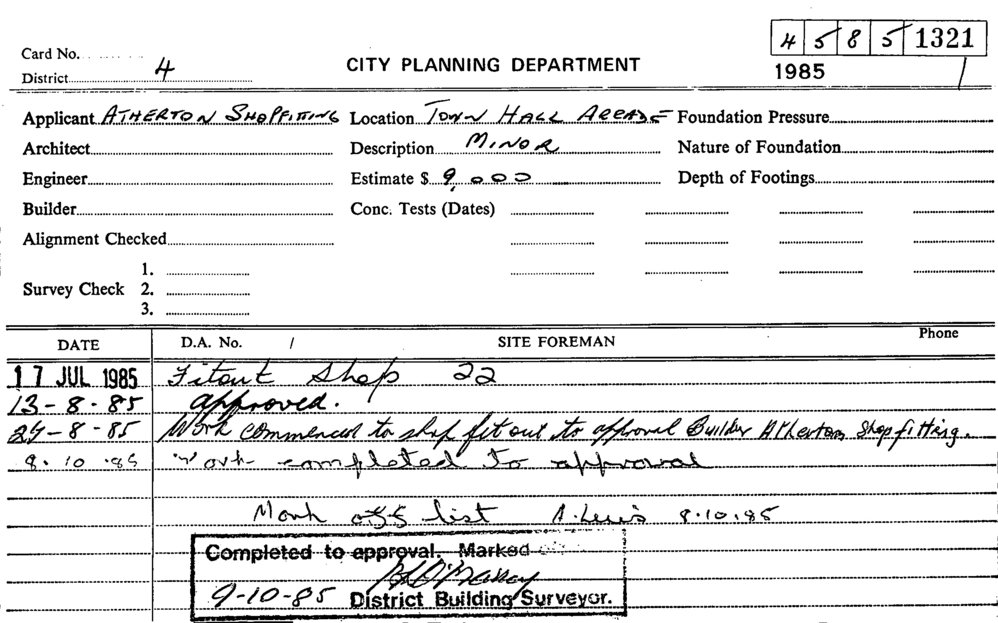 4 5 8 5 1321
Card No.
District 4
CITY PLANNING DEPARTMENT
1985
Applicant ATHERTON SHOPFITTING Location TOWN HALL ARCADE Foundation Pressure
Architect Description MINOR Nature of Foundation
Engineer Estimate $ 9,000 Depth of Footings
Builder Conc. Tests (Dates)
Alignment Checked
Survey Check 1.
2.
3.
DATE D.A. No. / SITE FOREMAN Phone
17 JUL 1985 Fitout Shop 22
13-8-85 approved.
29-8-85 Work commenced to shop fit out to approval Builder Atherton Shopfitting.
8.10.85 Work completed to approval
Mark off list A. Lewis 8.10.85
Completed to approval. Marked off
9-10-85 District Building Surveyor.